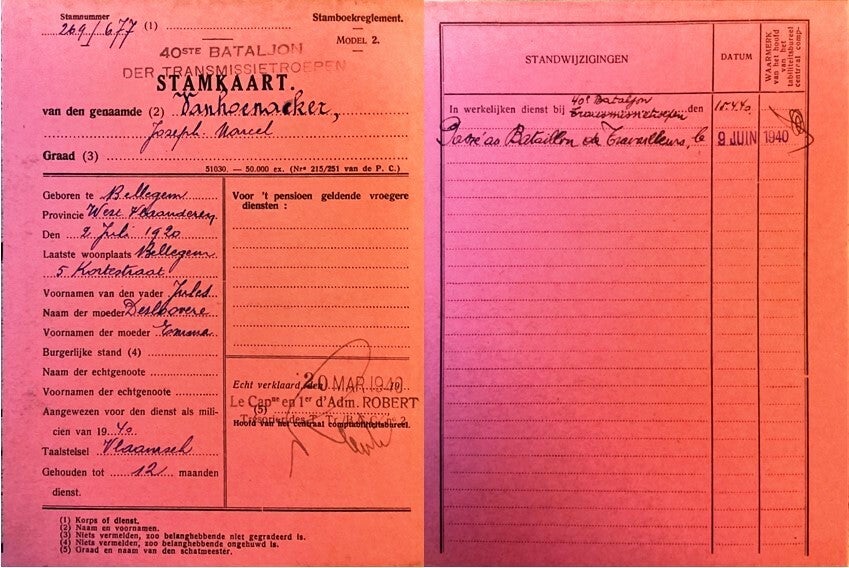 Stamnummer
269/677 (1)
Stamboekreglement.
MODEL 2.
40STE BATALJON
DER TRANSMISSIETROEPEN
STAMKAART.
van den genaamde (2) Vanhoenacker,
Joseph Marcel
Graad (3)
51030. — 50.000 ex. (Nrs 215/251 van de P. C.)
Geboren te Bellegem
Provincie West Vlaanderen
Den 2 Juli 1920
Laatste woonplaats Bellegem
5 Kortestraat
Voornamen van den vader Jules
Naam der moeder Desloovere
Voornamen der moeder Emma
Burgerlijke stand (4)
Naam der echtgenoote
Voornamen der echtgenoote
Aangewezen voor den dienst als mili-
cien van 19 40
Taalstelsel Vlaamsch
Gehouden tot 12 maanden
dienst.
Voor 't pensioen geldende vroegere
diensten :
Echt verklaard, den 20 MAR 1940 19
Le Capne en 1er d'Adm. ROBERT
(5)
Hoofd van het centraal comptabiliteitsbureel.
(1) Korps of dienst.
(2) Naam en voornamen.
(3) Niets vermelden, zoo belanghebbende niet gegradeerd is.
(4) Niets vermelden, zoo belanghebbende ongehuwd is.
(5) Graad en naam van den schatmeester.
STANDWIJZIGINGEN
DATUM
WAARMERK
van het hoofd
van het
centraal comp-
tabiliteitsbureel
In werkelijken dienst bij 40e Bataljon
Transmissietroepen den
Passé au Bataillon de Travailleurs, le 9 JUIN 1940